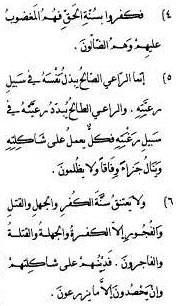 ٤) فكفروا بسنّة الحقّ فهم المغضوب
عليهم وهم الضّالّون.
٥) إنّما الراعي الصّالح يبذل نفسه في سبيل
رعيّته. والراعي الطّالح يبدّد رعيّته في
سبيل رغبته فكلٌّ يعمل على شاكلته
وينال جزاءً وفاقًا ولا يظلمون.
٦) ولا يعتنق سنّة الكفر والجهل والقتل
والفجور إلّا الكفرة والجهلة والقتلة
والفاجرون. فدينهم على شاكلتهم
وإن يحصدون إلّا ما يزرعون.